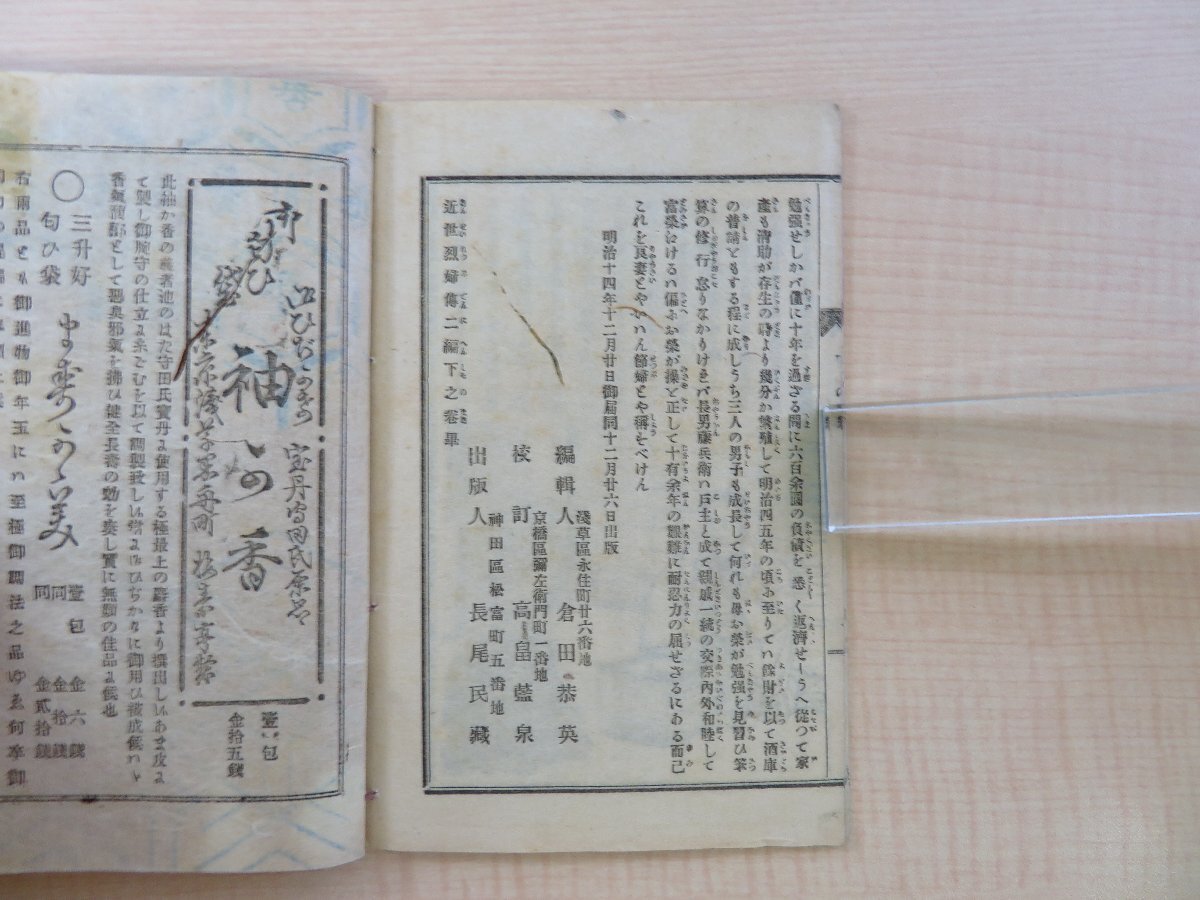 勉強せしかバ僅に十年を過ざる間に六百余圓の負債を悉く返濟せしうへ從つて家
產も淸助が存生の時より幾分か繁殖して明治四五年の頃ふ至りてハ餘財を以て酒庫
の普請ともする程に成しうち三人の男子も成長して何れも母お榮が勉强を見習ひ筆
算の修行怠りなかりけれバ長男藤兵衛ハ戸主と成て親戚一統の交際內外和陸して
富榮はけるハ偏ふお榮が操と正して十有余年の艱難に耐忍力の屈せざるにある而己
これを良妻とやいハん節婦とや稱をべけん
明治十四年十二月廿日御屆同十二月廿六日出版
淺草區永住町廿六番地
編輯人 倉田恭英
京橋區彌左衛門町一番地
校訂 高畠藍泉
神田區松富町五番地
出版人 長尾民藏
近世烈婦傳二編下之卷畢
御匂ひ袋
袖の香
東京淺草
壹包
金拾五錢
此袖か香の義者池のはた守田氏寶丹よ使用する極最上の麝香より撰出し
香氣馥郁として惡臭邪氣を拂ひ健全長壽の効を奏し實に無類の佳品よ候也
〇 三升好
匂ひ袋
壹包 金六錢
同 金拾錢
同 金貳拾錢
右兩品とも御進物御年玉にハ至極御調法之品ゆゑ何卒御